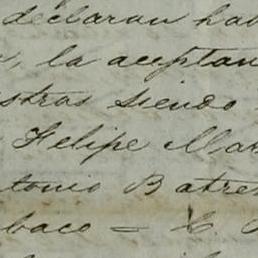 declaran hab
, la aceptan
estros siendo
Felipe Mar
tonio Batre
baco = C